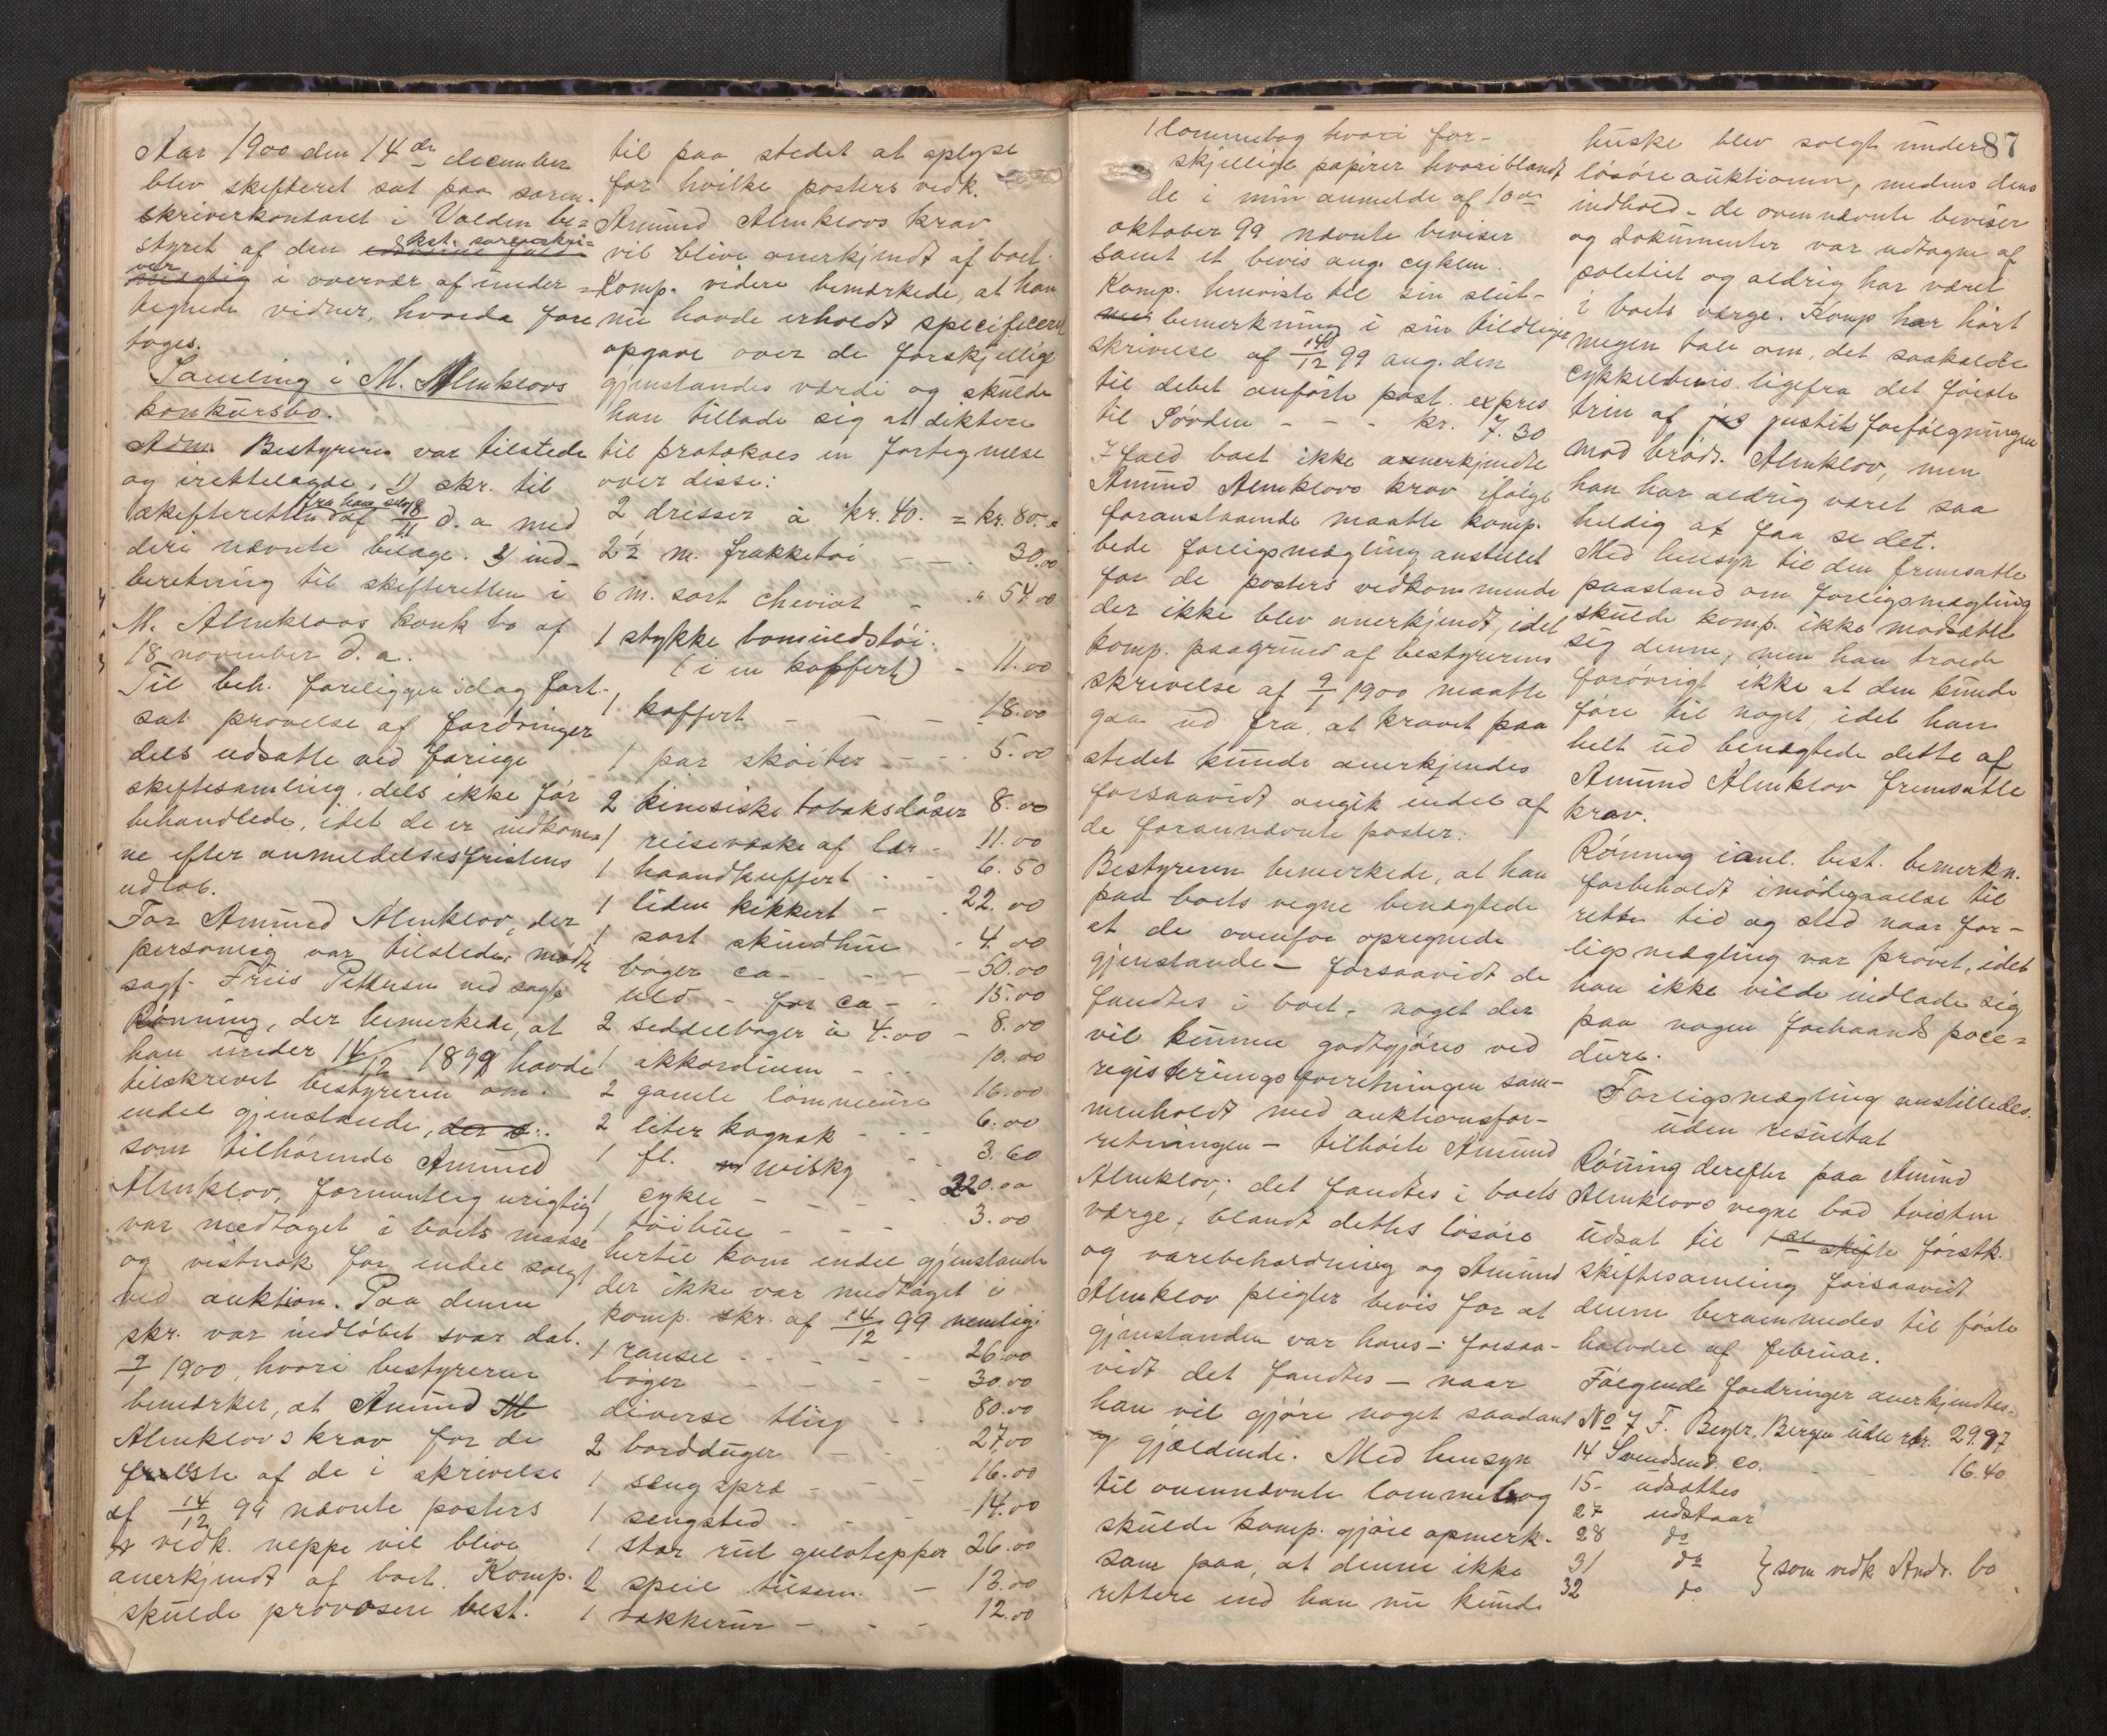 Aar 1900 den 14de december
blev skifteret sat paa soren-
skriverkontoret i Volden be-
styret af den edsvorne fuld-
kst. sorenskri-
ver
mægtig i overvær af under-
tegnede vidner, hvorda fore
toges.
Samling i M. Almklovs
konkursbo.
Adm. Bestyreren var tilstede
og irettelagde, 1) skr. til
skifteretten af 18/11 d. a med
fra ham selv
deri nævnte bilage. 2) ind-
beretning til skifteretten i
M. Almklovs konk bo af
18 november d. a.
Til beh. foreligger idag fort-
sat prøvelse af fordringer
dels udsatte ved forrige
skiftesamling, dels ikke før
behandlede, idet de er indkom-
ne efter anmeldelsesfristens
udløb.
For Amund Almklov, der
personlig var tilstede, mødte
sagf. Friis Petersen ved sagf.
Rønning, der bemerkede, at
han under 14/12 1899 havde
tilskrevet bestyreren om
endel gjenstande, der
som tilhørende Amund
Almklov, formentlig urigtig
var medtaget i boets masse
og vistnok for endel solgt
ved auktion. Paa denne
skr. var indløbet svar dat.
9/1 1900, hvori bestyreren
bemærker, at Amund M
Almklovs krav for de
fleste af de i skrivelse
af 14/12 99 nævnte posters
vedk. neppe vil blive
anerkjendt af boet. Komp.
skulde provosere best.
til paa stedet at oplyse
for hvilke posters vedk.
Amund Almklovs krav
vil blive anerkjendt af boet.
Komp. videre bemærkede, at han
nu havde erholdt specificeret
opgave over de forskjellige
gjenstandes værdi og skulde
han tillade sig at diktere
til protokols en fortegnelse
over disse:
2 dresser à kr. 40. = kr. 80.-
2½ m. frakketøi - - 30.00
6 m. sort cheviot - " 54.00
1 stykke bomuldstøi
(i en koffert) - 11.00
1 koffert - - - 18.00
1 par skøiter - - - 5.00
2 kinesiske tobaksdåser 8.00
1 reisevæske af lær - 11.00
1 haandkuffert - - 6.50
1 liden kikkert - - 22.00
1 sort skindhue - 4.00
bøger ca - - - - 50.00
uld - for ca - - 15.00
2 seddelbøger à 4.00 - 8.00
1 akkordium - - - 10.00
2 gamle lommeure 16.00
2 liter kognak - - - 6.00
1 fl. wisky - - 3.60
1 cykle - - - 220.00
1 tøihue - - - - 3.00
hertil kom endel gjenstande
der ikke var medtaget i
komp. skr. af 14/12 99 nemlig:
1 ransel - - - - 26.00
bøger - - - - 30.00
diverse tøig - - 80.00
2 bordduger - - 27.00
1 sengspræ - - - 16.00
1 sengsted - - - 14.00
1 stor rul gulvtepper 26.00
2 speil tilsem. - 13.00
1 vækkerur - - - 12.00
87
1 lommebog hvori for-
skjellige papirer hvoriblandt
de i min anmelde af 10de
oktober 99 nævnte beviser
samt et bevis ang. cyklen.
Komp. henviste til sin slut-
bemerkning i sin tidligere
skrivelse af 14/12 99 ang. den
til debet anførte post. expres
til Søvden - - - kr. 7.30
Ifald boet ikke anerkjendte
Amund Almklovs krav ifølge
foranstaaende maatte komp.
bede forligsmægling anstillet
for de posters vedkommende
der ikke blev anerkjendt, idet
komp. paagrund af bestyrerens
skrivelse af 9/1 1900 maatte
gaa ud fra, at kravet paa
stedet kunde anerkjendes
forsaavidt angik endel af
de forannævnte poster.
Bestyreren bemerkede, at han
paa boets vegne benægtede
at de ovenfor opregnede
gjenstande - forsaavidt de
fandtes i boet, noget der
vil kunne godtgjøres ved
registreringsforretningen sam-
menholdt med auktionsfor-
retningen - tilhørte Amund
Almklov; det fandtes i boets
værge, blandt dettes løsøre
og varebeholdning og Amund
Almklov pligter bevis for at
gjenstanden var hans - forsaa-
vidt det fandtes - naar
han vil gjøre noget saadant
gjældende. Med hensyn
til ovennævnte lommebog
skulde komp. gjøre opmerk-
som paa, at denne ikke
rettere end han nu kunde
huske blev solgt under
løsøreauktionen, medens dens
indhold - de ovennævnte beviser
og dokumenter var udtagne af
politiet og aldrig har været
i boets værge. Komp har hørt
megen tale om, det saakaldte
cykkelbevis ligefra det første
trin af justitsforfølgningen
mod brødr. Almklov, men
han har aldrig været saa
heldig at faa se det.
Med hensyn til den fremsatte
paastand om forligsmægling
skulde komp. ikke modsætte
sig denne, men han troede
forøvrigt ikke at den kunde
føre til noget, idet han
helt ud benægtede dette af
Amund Almklov fremsatte
krav.
Rønning i anl. best. bemerkn.
forbeholdt imødegaaelse til
rette tid og sted naar for-
ligsmægling var prøvet, idet
han ikke vilde indlade sig
paa nogen forhaands poce-
dure.
Forligsmægling anstilledes
uden resultat
Rønning derefter paa Amund
Almklovs vegne bad tvisten
udsat til 1ste skifte førstk.
skiftesamling forsaavidt
denne berammedes til første
halvdel af februar.
Følgende fordringer anerkjendtes:
No 7 F. Beyer, Bergen uden rkr. 29.97
14 Svendsen & co. - - - 16.40
15 - udsættes
27 udstaar
28 do
31 do } som vedk Andr. bo
32 do